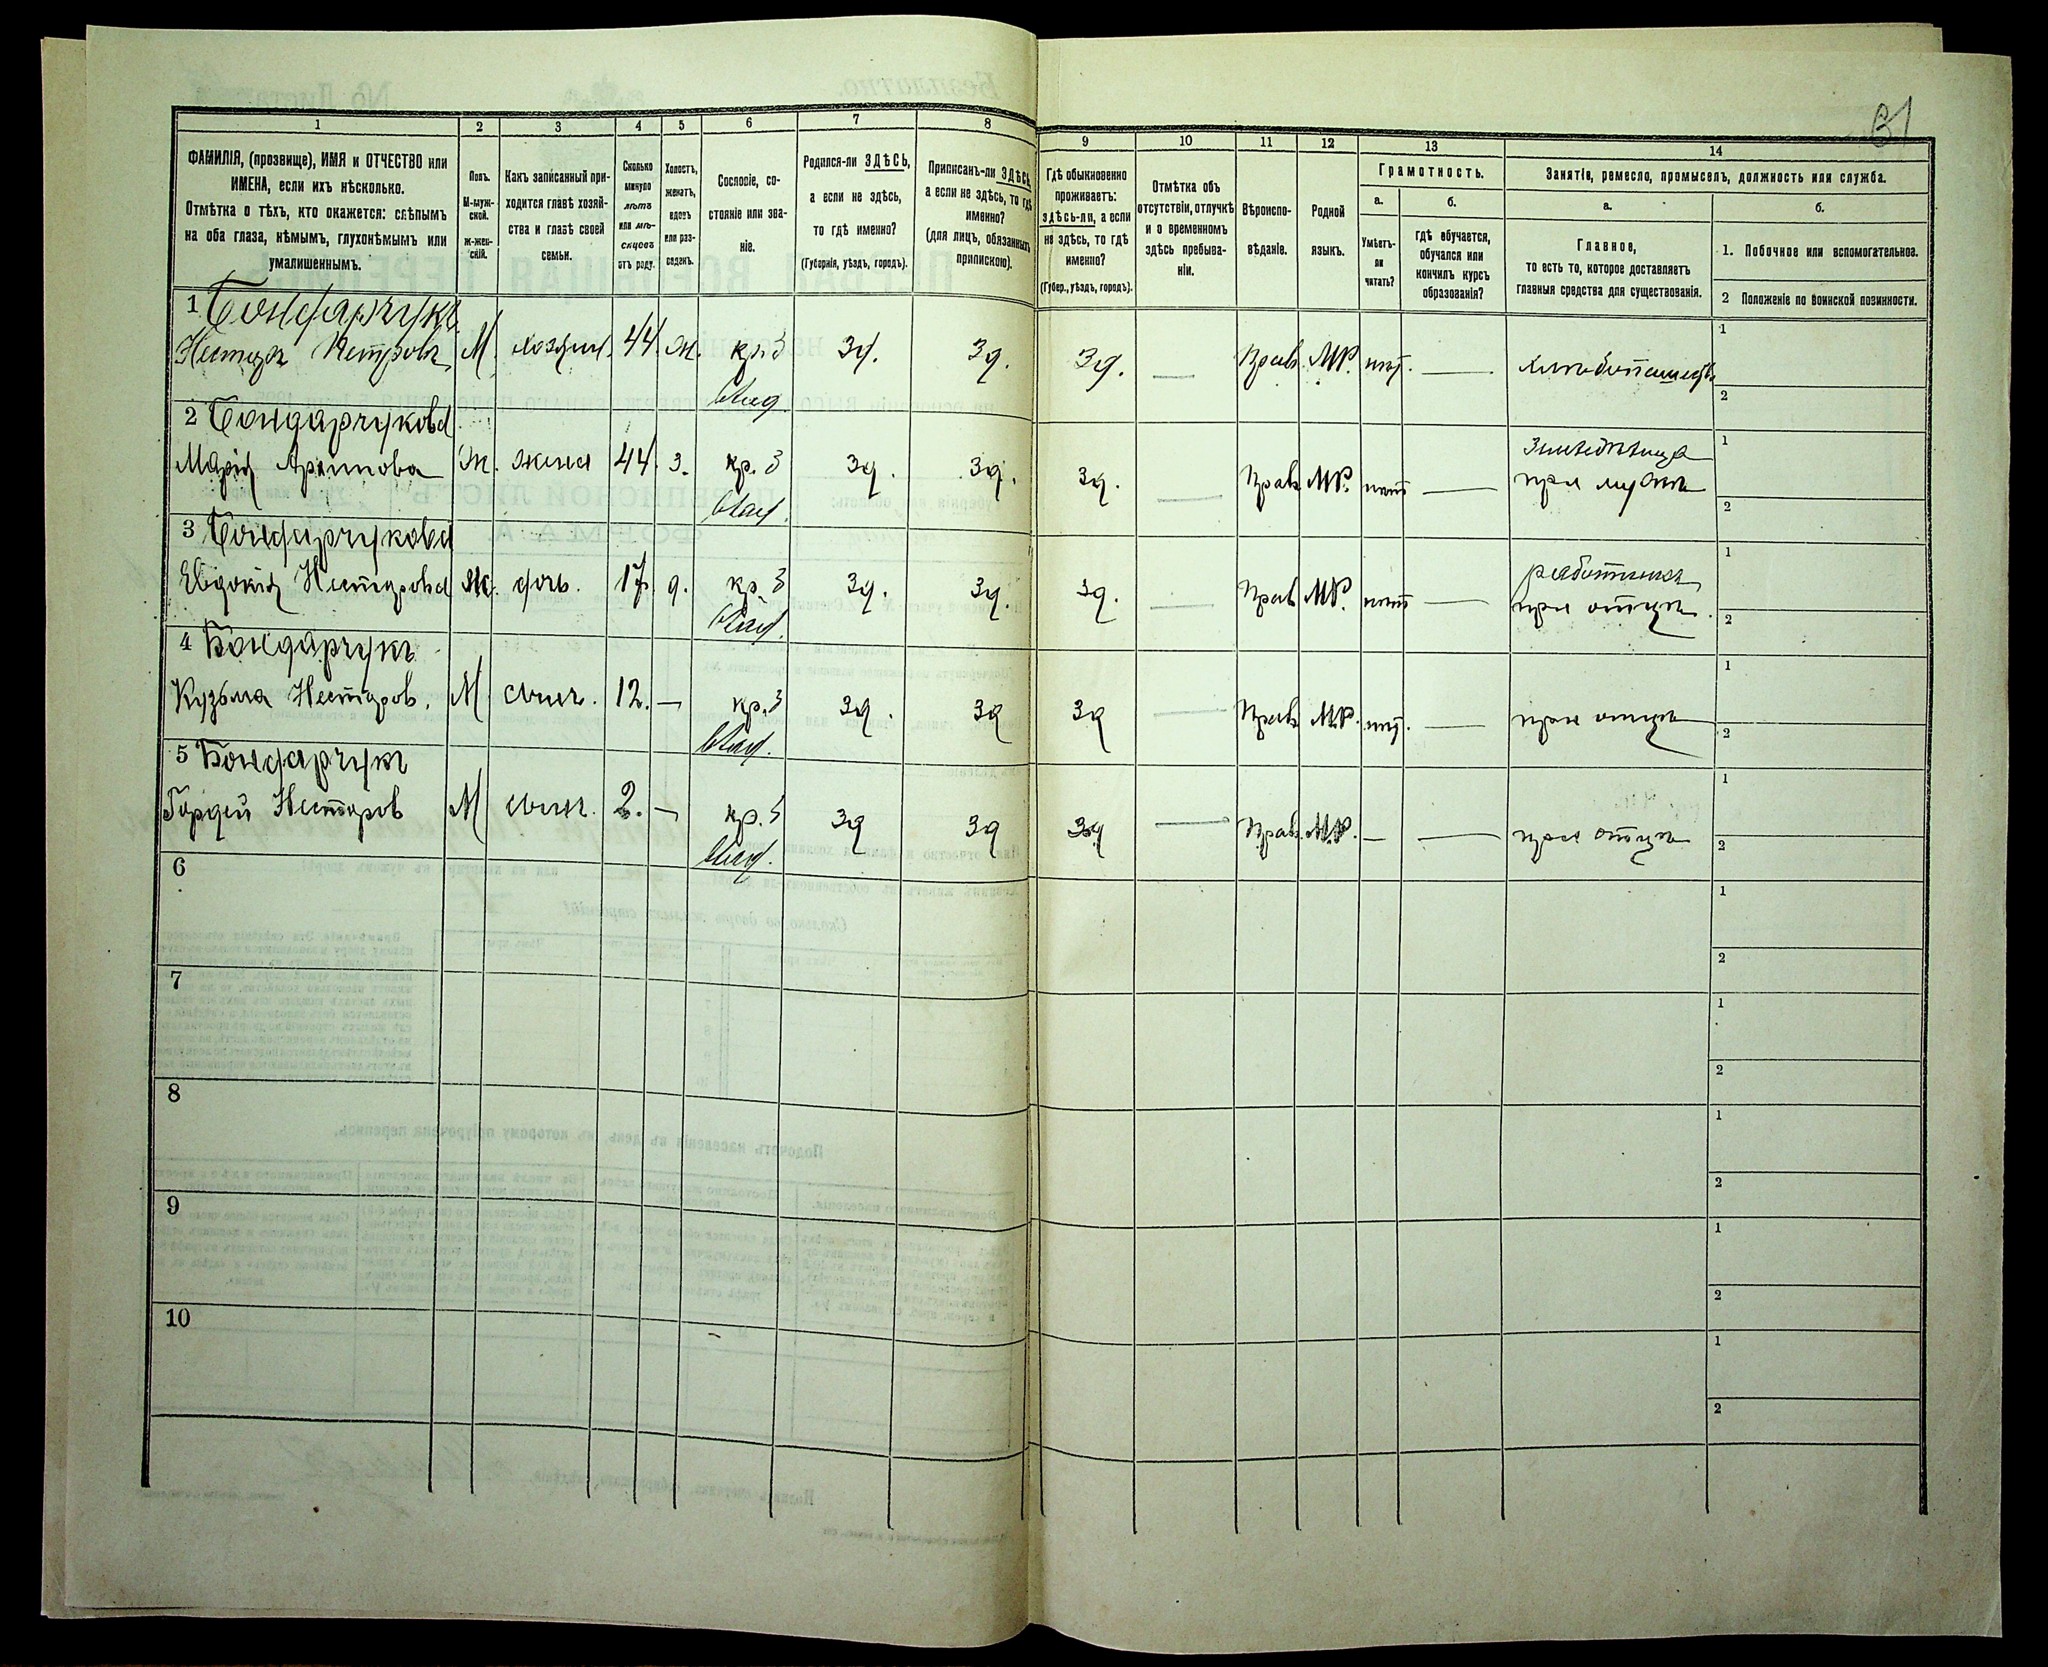 31
1 2 3 4 5 6 7 8 9 10 11 12 13 14
ФАМИЛІЯ, (прозвище), ИМЯ и ОТЧЕСТВО или
ИМЕНА, если ихъ нѣсколько.
Отмѣтка о тѣхъ, кто окажется: слѣпымъ
на оба глаза, нѣмымъ, глухонѣмымъ или
умалишеннымъ.
Полъ.
М-муж-
ской.
ж-жен-
скій.
Какъ записанный при-
ходится главѣ хозяй-
ства и главѣ своей
семьи.
Сколько
минуло
лѣтъ
или мѣ-
сяцевъ
отъ роду.
Холостъ,
женатъ,
вдовъ
или раз-
веденъ.
Сословіе, со-
стояніе или зва-
ніе.
Родился-ли ЗДѢСЬ,
а если не здѣсь,
то гдѣ именно?
(Губернія, уѣздъ, городъ).
Приписанъ-ли ЗДѢСЬ,
а если не здѣсь, то гдѣ
именно?
(для лицъ, обязанныхъ
припискою).
Гдѣ обыкновенно
проживаетъ:
здѣсь-ли, а если
не здѣсь, то гдѣ
именно?
(Губер., уѣздъ, городъ).
Отмѣтка объ
отсутствіи, отлучкѣ
и о временномъ
здѣсь пребыва-
ніи.
Вѣроиспо-
вѣданіе.
Родной
языкъ.
Грамотность.
а. б.
Умѣетъ-
ли
читать?
гдѣ обучается,
обучался или
кончилъ курсъ
образованія?
Занятіе, ремесло, промыселъ, должность или служба.
а. б.
Главное,
то есть то, которое доставляетъ
главныя средства для существованія.
1. Побочное или вспомогательное.
2 Положеніе по воинской повинности.
1 Бондарчукъ
Нестеръ Петровъ М. хозяин. 44. ж. кр. з зд. зд. зд. — Прав. МР. нѣт. — хлѣбопашецъ 1
влад. 2
2 Бондарчукова
Марія Ж. жена 44. з. кр. з зд. зд. зд. — Прав. МР. нѣт — при мужѣ 1
влад. 2
3 Бондарчукова
Евдокія Нестерова Ж. дочь. 17. д. кр. з зд. зд. зд. — Прав. МР. нѣт — при отцѣ. 1
влад. 2
4 Бондарчукъ
Кузьма Нестеров. М сынъ. 12. — кр. з зд. зд зд — Прав. МР. нѣт. — при отцѣ 1
влад. 2
5 Бондарчукъ
Гордей Нестеров М сынъ. 2. — кр. з зд зд зд — Прав. МР. — — при отцѣ 1
влад. 2
6 1
2
7 1
2
8 1
2
9 1
2
10 1
2